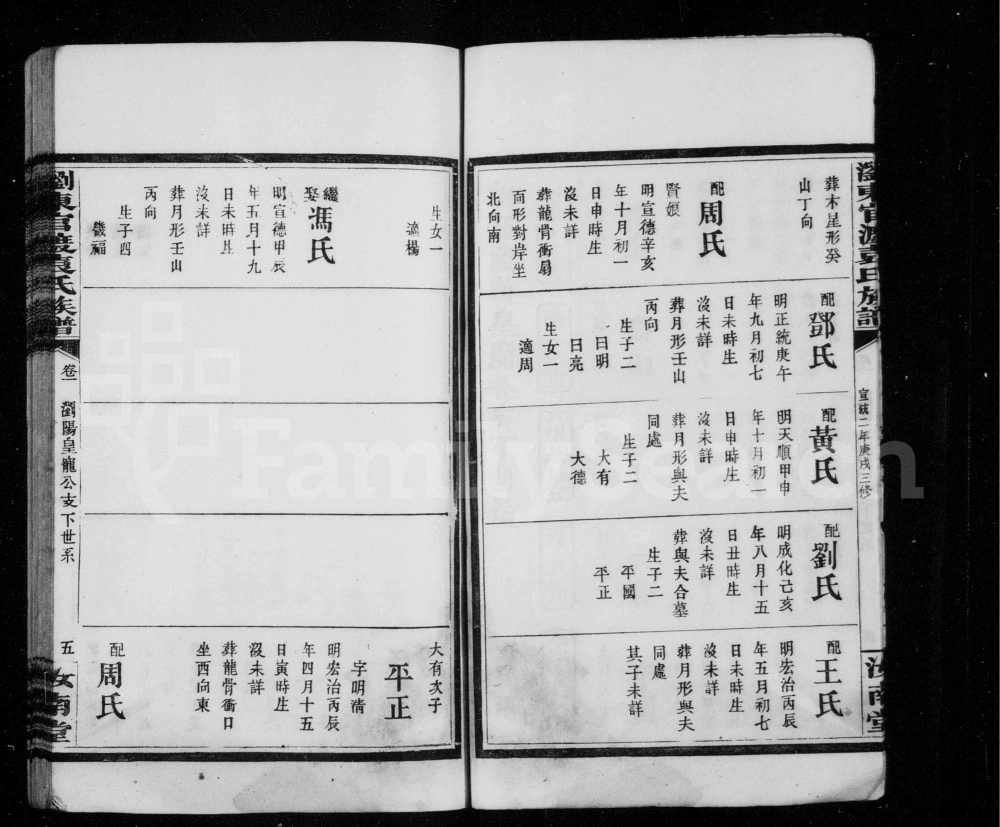 瀏東官渡袁氏族譜
宣統二年庚戌三修
汝南堂
葬木星形癸
山丁向
配
周氏
賢娘
明宣德辛亥
年十月初一
日申時生
沒未詳
葬龍骨衝扇
面形對岸坐
北向南
配
鄧氏
明正統庚午
年九月初七
日未時生
沒未詳
葬月形壬山
丙向
生子二
日明
日亮
生女一
適周
配
黃氏
明天順甲申
年十月初一
日申時生
沒未詳
葬月形與夫
同處
生子二
大有
大德
配
劉氏
明成化己亥
年八月十五
日丑時生
沒未詳
葬與夫合墓
生子二
平國
平正
配
王氏
明宏治丙辰
年五月初七
日未時生
沒未詳
葬月形與夫
同處
其子未詳
生女一
適楊
繼娶
馮氏
明宣德甲辰
年五月十九
日未時生
沒未詳
葬月形壬山
丙向
生子四
儀福
大有次子
平正
字明淸
明宏治丙辰
年四月十五
日寅時生
沒未詳
葬龍骨衝口
坐西向東
配
周氏
瀏東官渡袁氏族譜
卷一
瀏陽皇寵公支下世系
五
汝南堂
FamilySearch